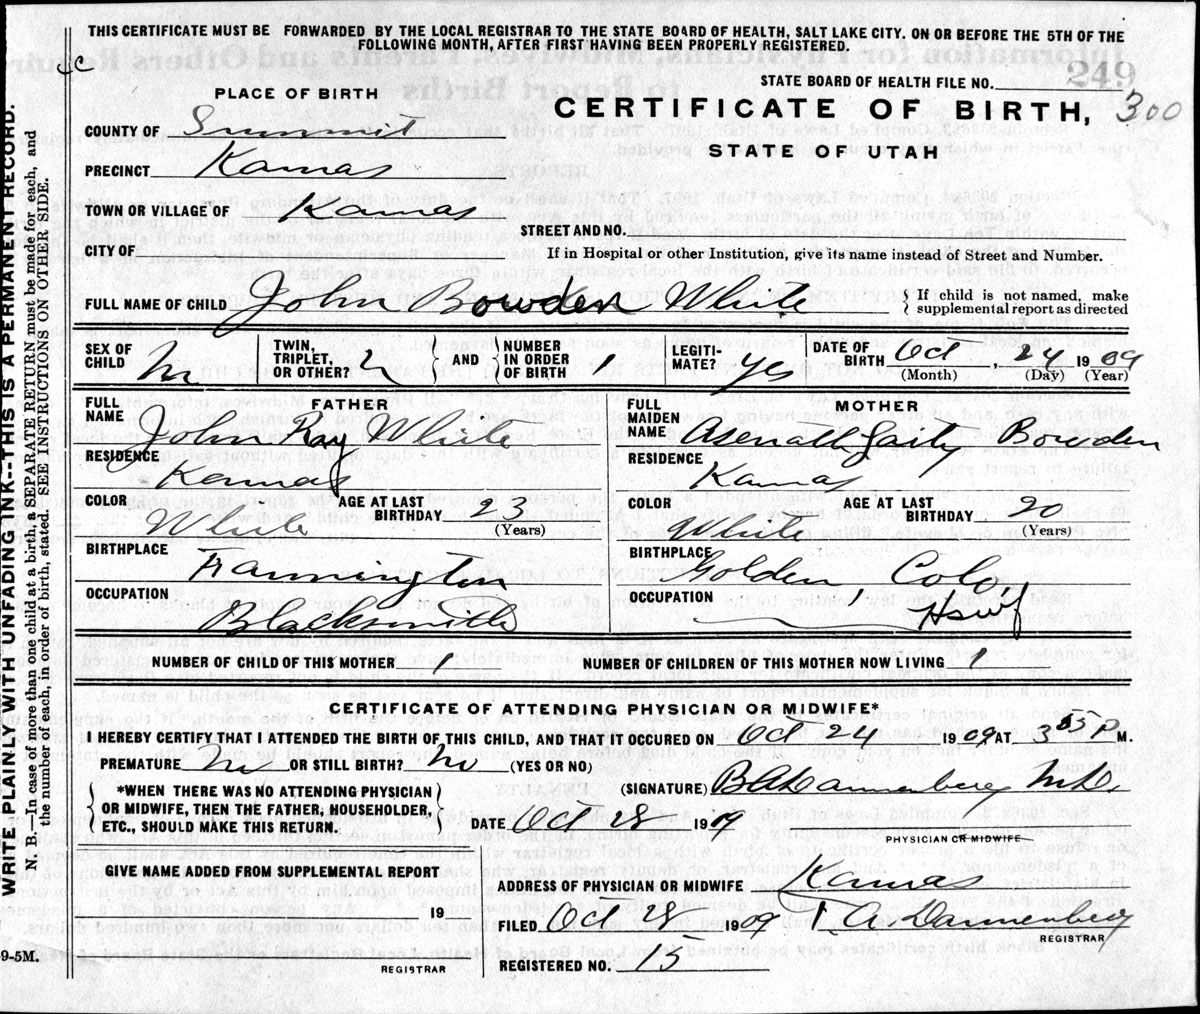 THIS CERTIFICATE MUST BE FORWARDED BY THE LOCAL REGISTRAR TO THE STATE BOARD OF HEALTH, SALT LAKE CITY. ON OR BEFORE THE 5TH OF THE
FOLLOWING MONTH, AFTER FIRST HAVING BEEN PROPERLY REGISTERED.
249
STATE BOARD OF HEALTH FILE NO.
PLACE OF BIRTH
CERTIFICATE OF BIRTH, 300
STATE OF UTAH
COUNTY OF Summit
PRECINCT Kamas
TOWN OR VILLAGE OF Kamas
STREET AND NO.
CITY OF
If in Hospital or other Institution, give its name instead of Street and Number.
FULL NAME OF CHILD John Bowden White
If child is not named, make
supplemental report as directed
SEX OF CHILD M
TWIN, TRIPLET, OR OTHER?
AND
NUMBER IN ORDER OF BIRTH 1
LEGITIMATE? yes
DATE OF BIRTH Oct, 24 1909
(Month) (Day) (Year)
FATHER
FULL NAME John Ray White
RESIDENCE Kamas
COLOR White
AGE AT LAST BIRTHDAY 23
(Years)
BIRTHPLACE Farmington
OCCUPATION Blacksmith
MOTHER
FULL MAIDEN NAME Asenath Bowden
RESIDENCE Kamas
COLOR White
AGE AT LAST BIRTHDAY 20
(Years)
BIRTHPLACE Golden Colo
OCCUPATION Hswf
NUMBER OF CHILD OF THIS MOTHER 1
NUMBER OF CHILDREN OF THIS MOTHER NOW LIVING 1
CERTIFICATE OF ATTENDING PHYSICIAN OR MIDWIFE*
I HEREBY CERTIFY THAT I ATTENDED THE BIRTH OF THIS CHILD, AND THAT IT OCCURRED ON Oct 24 1909 AT 3 55 P M.
PREMATURE No OR STILL BIRTH? No (YES OR NO)
*WHEN THERE WAS NO ATTENDING PHYSICIAN
OR MIDWIFE, THEN THE FATHER, HOUSEHOLDER,
ETC., SHOULD MAKE THIS RETURN.
(SIGNATURE) Dannenberg M.D.
DATE Oct 28 1909
PHYSICIAN OR MIDWIFE
GIVE NAME ADDED FROM SUPPLEMENTAL REPORT
19
REGISTRAR
ADDRESS OF PHYSICIAN OR MIDWIFE Kamas
FILED Oct 28 1909 Dannenberg
REGISTRAR
REGISTERED NO. 13
WRITE PLAINLY WITH UNFADING INK--THIS IS A PERMANENT RECORD.
N. B.—In case of more than one child at a birth, a SEPARATE RETURN must be made for each, and
the number of each, in order of birth, stated. SEE INSTRUCTIONS ON OTHER SIDE.
9-5M.